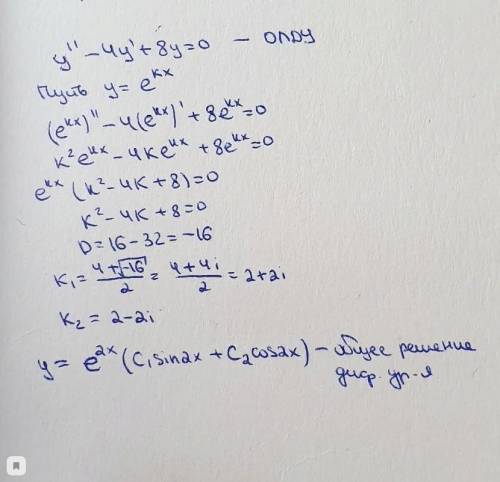 y'' - 4y' + 8y = 0 — ОЛДУ
Пусть y = e^{kx}
(e^{kx})'' - 4(e^{kx})' + 8e^{kx} = 0
k²e^{kx} - 4ke^{kx} + 8e^{kx} = 0
e^{kx}(k² - 4k + 8) = 0
k² - 4k + 8 = 0
D = 16 - 32 = -16
k₁ = \frac{4+\sqrt{-16}}{2} = \frac{4+4i}{2} = 2+2i
k₂ = 2-2i
y = e^{2x}(C₁sin2x + C₂cos2x) — общее решение
диф. ур-я